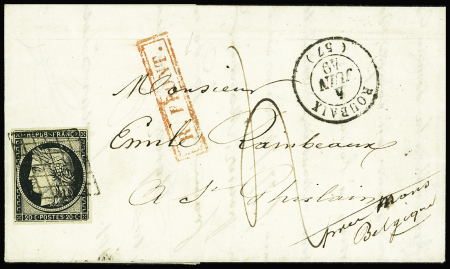 REPUB. FRANC.
20 C. POSTES 20 C.
R. FRONT.
ROUBAIX
4
JUIN
49
(57)
Monsieur
Emile Rambeaux
A St Ghislain
près Mons
Belgique